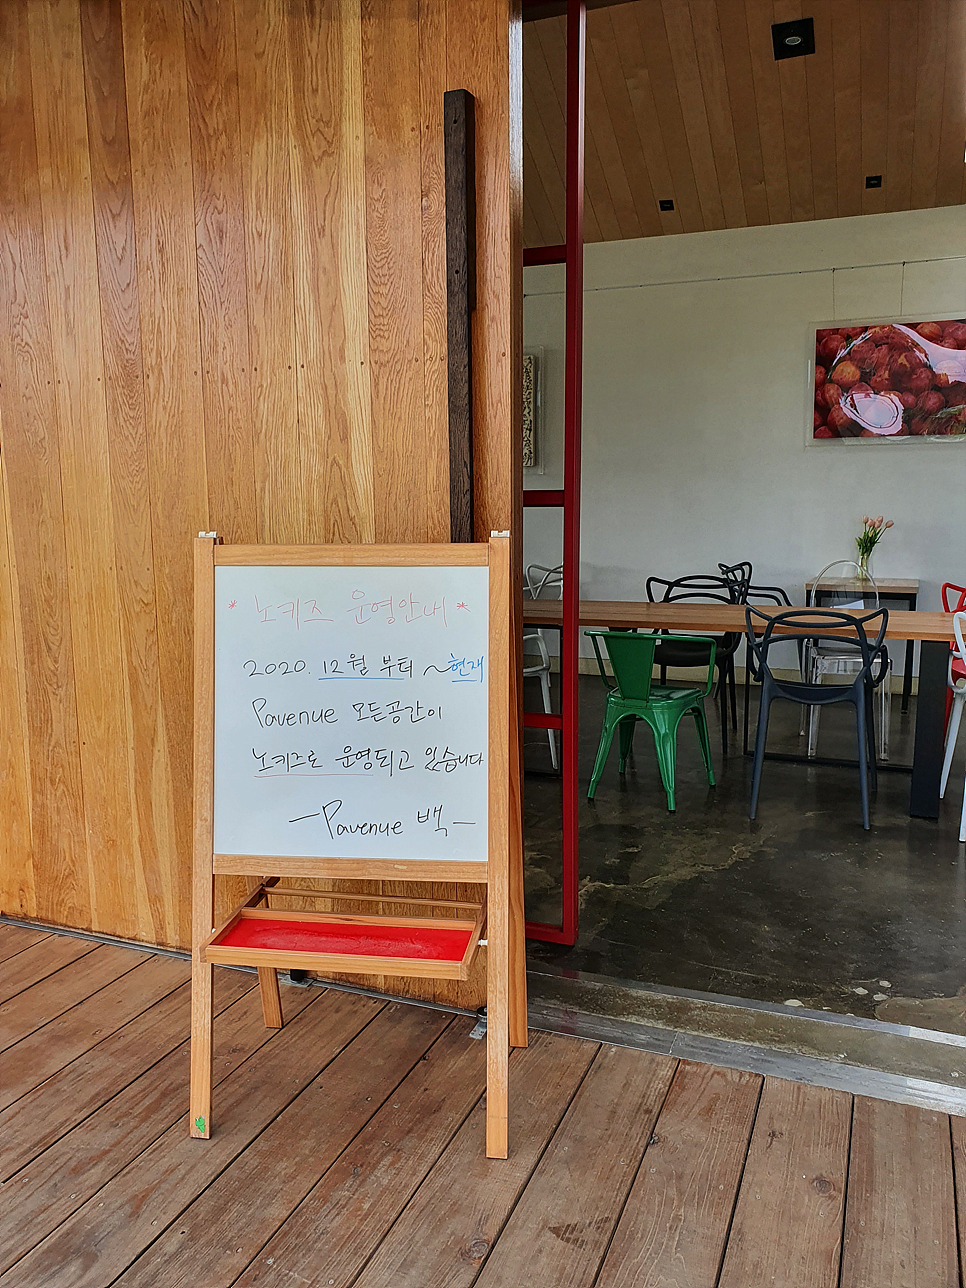 * 노키즈 운영안내 *
2020. 12월 부터 ~현재
Pavenue 모든공간이
노키즈로 운영되고 있습니다
-Pavenue 백-